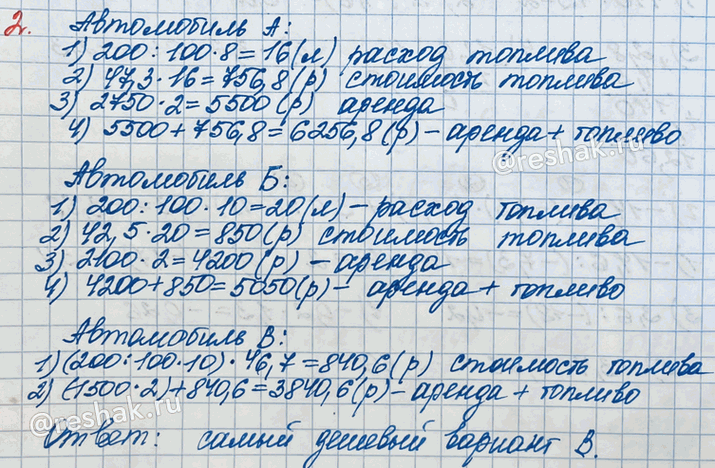 2. Автомобиль А:
1) 200:100·8=16(л) расход топлива
2) 47,3·16=756,8(р) стоимость топлива
3) 2750·2=5500(р) аренда
4) 5500+756,8=6256,8(р)-аренда+топливо
@reshak.ru
Автомобиль Б:
1) 200:100·10=20(л)-расход топлива
2) 42,5·20=850(р) стоимость топлива
3) 2100·2=4200(р)-аренда
4) 4200+850=5050(р)-аренда+топливо
Автомобиль В:
1)(200:100·10)·46,7=840,6(р) стоимость топлива
2) (1500·2)+840,6=3840,6(р)-аренда+топливо
@reshak.ru
Ответ: самый дешевый вариант В.